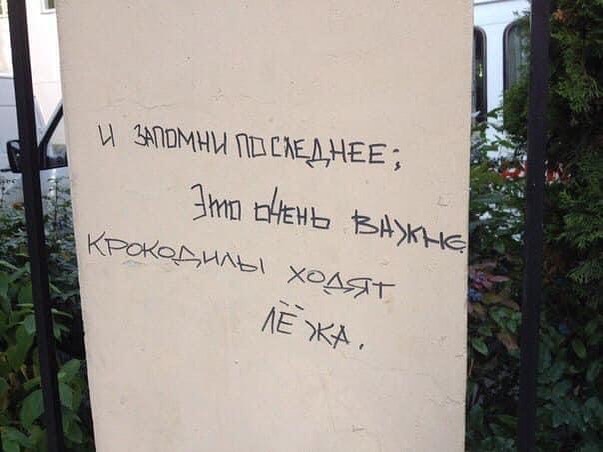 И ЗАПОМНИ ПОСЛЕДНЕЕ;
ЭТО ОЧЕНЬ ВАЖНЫЕ
КРОКОДИЛЫ ХОДЯТ
ЛЁЖА.